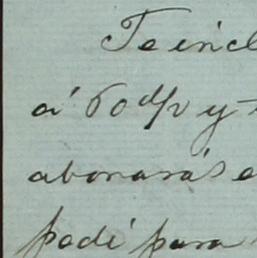 Te incl
á 60 d/v y
abonarás e
pedí para